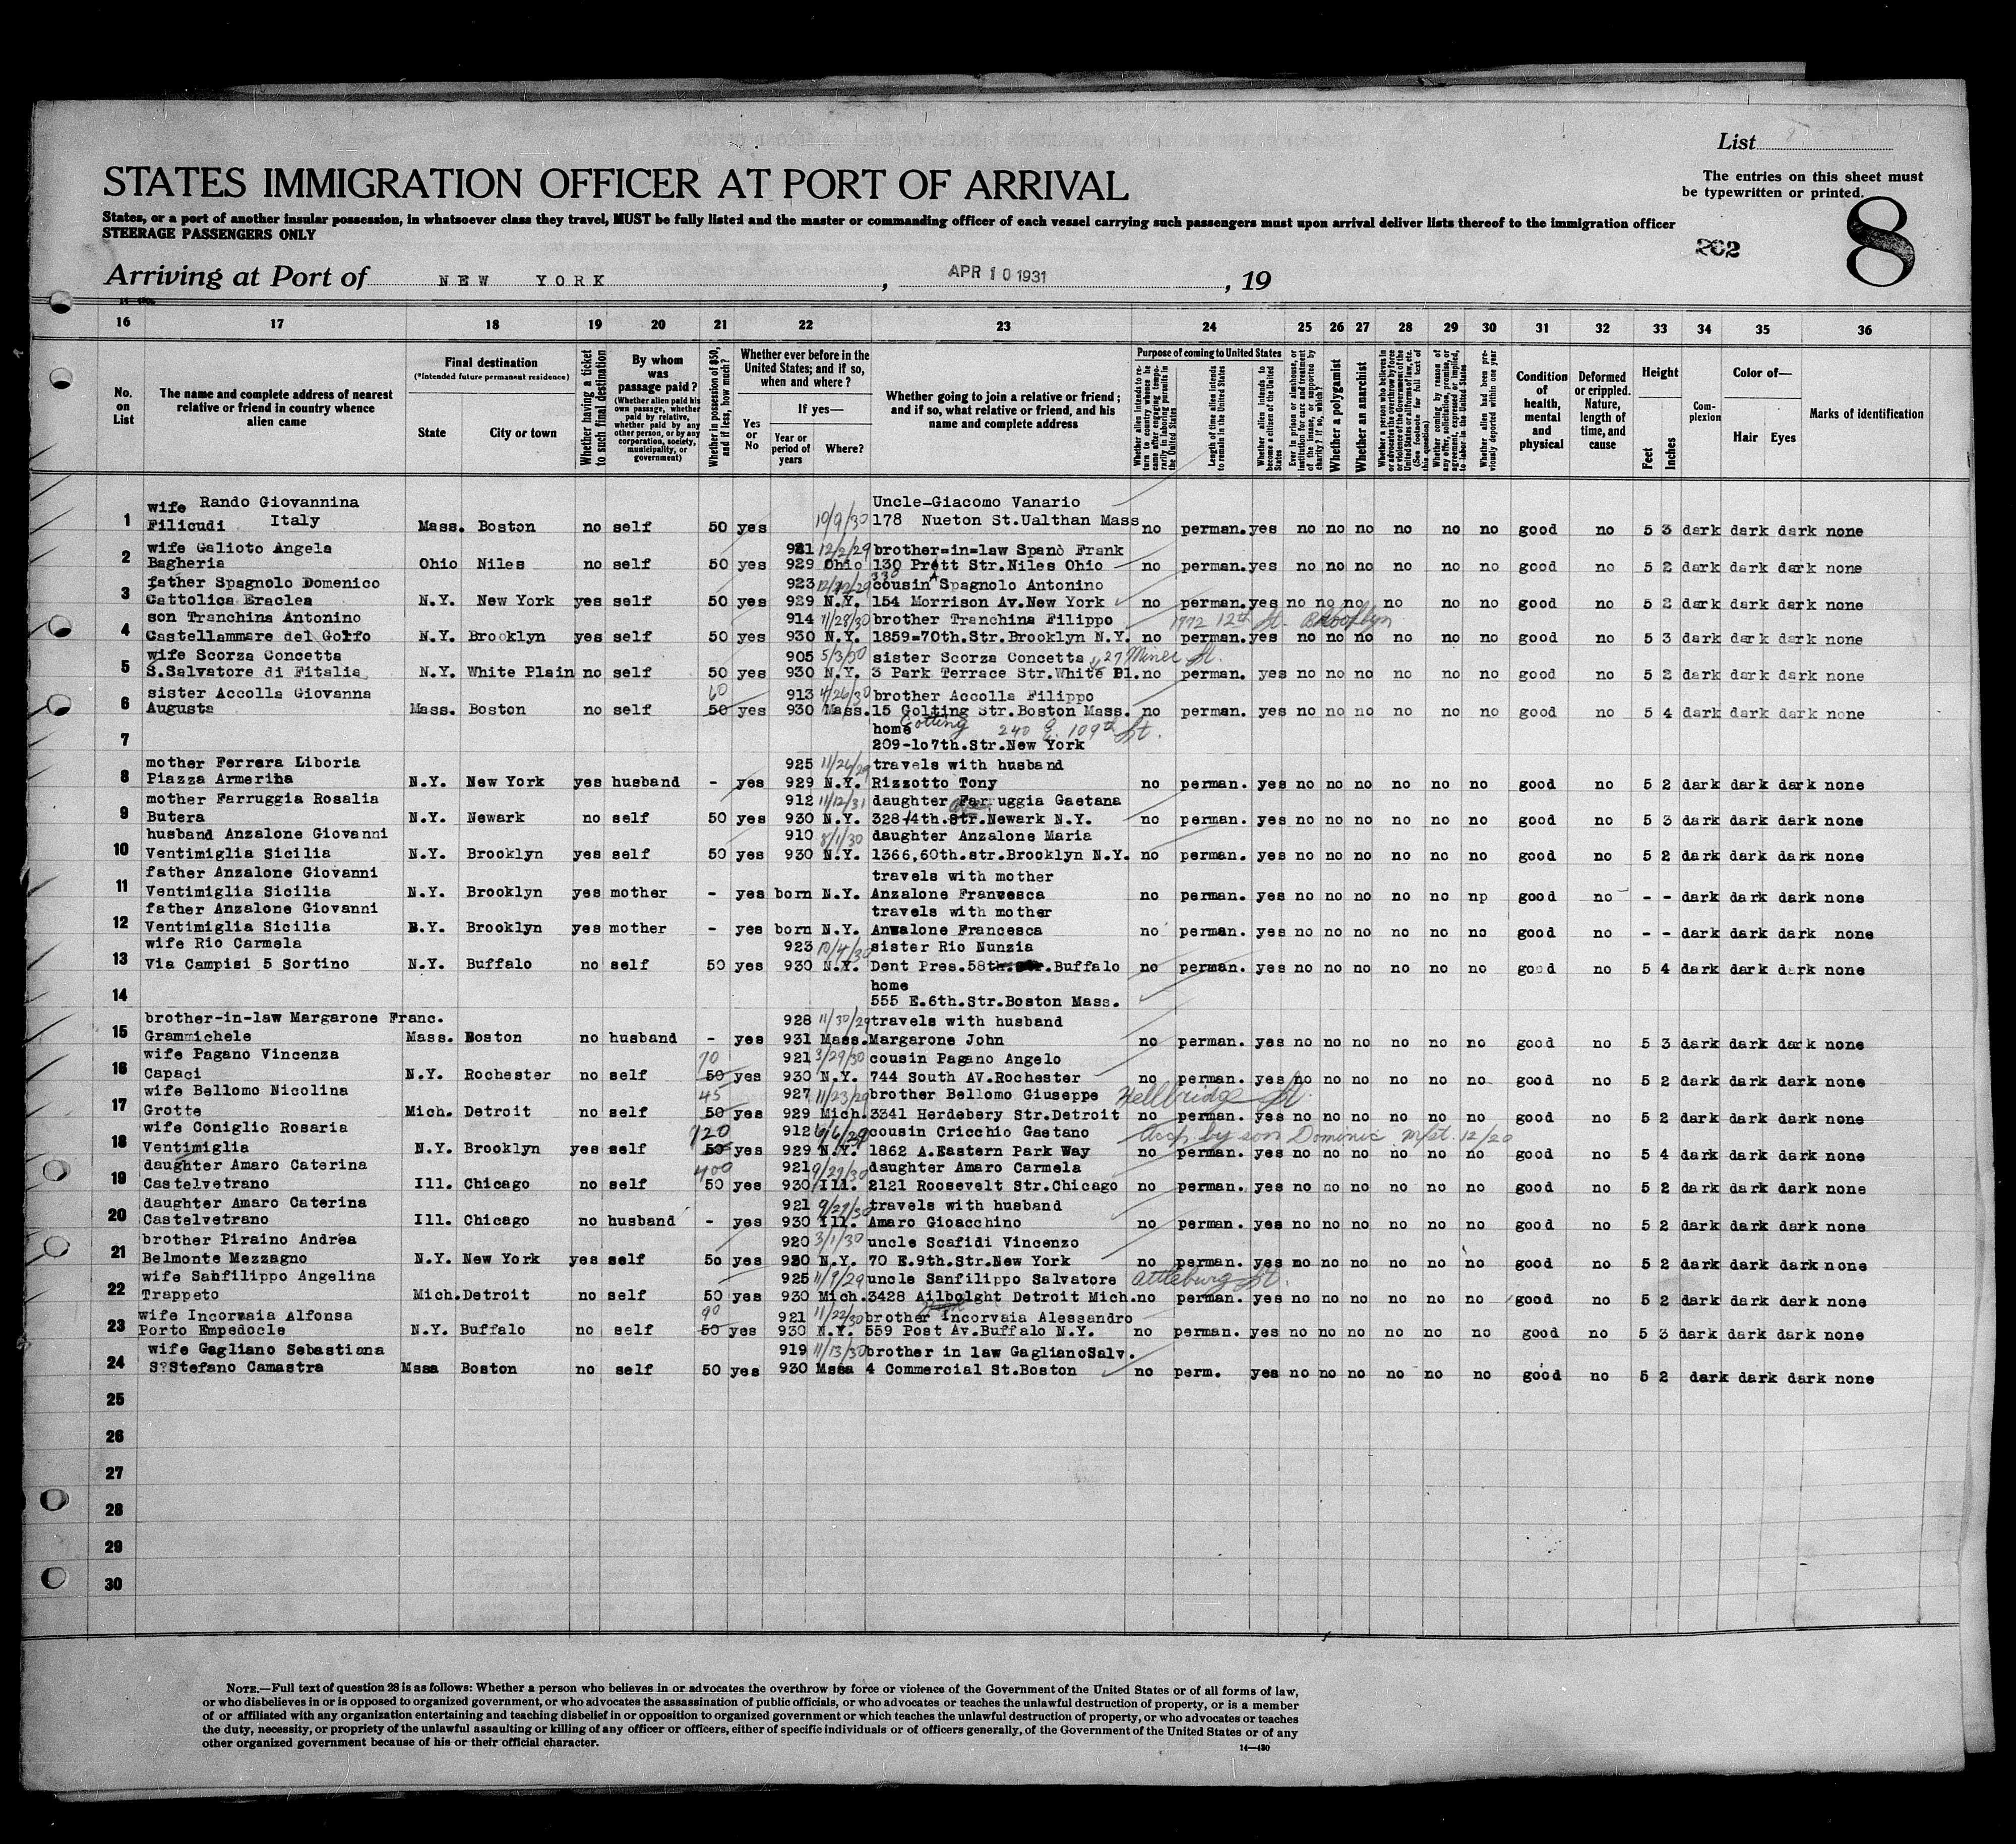 List 8
STATES IMMIGRATION OFFICER AT PORT OF ARRIVAL
The entries on this sheet must
be typewritten or printed.
States, or a port of another insular possession, in whatsoever class they travel, MUST be fully listed and the master or commanding officer of each vessel carrying such passengers must upon arrival deliver lists thereof to the immigration officer
STEERAGE PASSENGERS ONLY
202
8
Arriving at Port of NEW YORK, APR 10 1931, 19
16 17 18 19 20 21 22 23 24 25 26 27 28 29 30 31 32 33 34 35 36
No. on List
The name and complete address of nearest relative or friend in country whence alien came
Final destination
(*Intended future permanent residence)
State
City or town
Whether having a ticket to such final destination
By whom was passage paid?
(Whether alien paid his own passage, whether paid by relative, whether paid by any other person, or by any corporation, society, municipality, or government)
Whether in possession of $50, and if less, how much?
Whether ever before in the United States; and if so, when and where?
Yes or No
If yes—
Year or period of years
Where?
Whether going to join a relative or friend; and if so, what relative or friend, and his name and complete address
Purpose of coming to United States
Whether alien intends to return to country whence he came after engaging temporarily in laboring pursuits in the United States
Length of time alien intends to remain in the United States
Whether alien intends to become a citizen of the United States
Ever in prison or almshouse, or institution for care and treatment of the insane, or supported by charity? if so, which?
Whether a polygamist
Whether an anarchist
Whether a person who believes in or advocates the overthrow by force or violence of the Government of the United States or all forms of law, etc. (See footnote for full text of this question)
Whether coming by reason of any offer, solicitation, promise, or agreement, expressed or implied, to labor in the United States
Whether alien had been previously deported within one year
Condition of health, mental and physical
Deformed or crippled. Nature, length of time, and cause
Height
Feet
Inches
Complexion
Color of—
Hair
Eyes
Marks of identification
wife Rando Giovannina Uncle-Giacomo Vanario
1 Filicudi Italy Mass. Boston no self 50 yes 10/9/30 178 Nueton St.Ualthan Mass no perman. yes no no no no no no good no 5 3 dark dark dark none
wife Galioto Angela 921 12/2/29 brother=in=law Spanò Frank
2 Bagheria Ohio Niles no self 50 yes 929 Ohio 130 Pratt Str.Niles Ohio no perman.yes no no no no no no good no 5 2 dark dark dark none
father Spagnolo Domenico 923 12/22/29 330 cousin Spagnolo Antonino
3 Cattolica Eraclea N.Y. New York yes self 50 yes 929 N.Y. 154 Morrison Av.New York no perman.yes no no no no no no good no 5 2 dark dark dark none
son Tranchina Antonino 914 11/28/30 brother Tranchina Filippo 1772 12th St. Brooklyn
4 Castellammare del Golfo N.Y. Brooklyn yes self 50 yes 930 N.Y. 1859=70th.Str.Brooklyn N.Y. no perman.yes no no no no no no good no 5 3 dark dark dark none
wife Scorza Concetta 905 5/3/30 sister Scorza Concetta 27 Miner St.
5 S.Salvatore di Fitalia N.Y. White Plain no self 50 yes 930 N.Y. 3 Park Terrace Str.White Pl. no perman. yes no no no no no no good no 5 2 dark dark dark none
sister Accolla Giovanna 60 913 4/26/30 brother Accolla Filippo
6 Augusta Mass. Boston no self 50 yes 930 Mass. 15 Golting Str.Boston Mass. no perman. yes no no no no no no good no 5 4 dark dark dark none
home Cotting 240 E. 109th St.
7 209-1o7th.Str.New York
mother Ferrera Liboria 925 11/26/29 travels with husband
8 Piazza Armerina N.Y. New York yes husband - yes 929 N.Y. Rizzotto Tony no perman. yes no no no no no no good no 5 2 dark dark dark none
mother Farruggia Rosalia 912 11/12/31 daughter Farruggia Gaetana
9 Butera N.Y. Newark no self 50 yes 930 N.Y. 328-/4th.Str.Newark N.Y. no perman. yes no no no no no no good no 5 3 dark dark dark none
husband Anzalone Giovanni 910 8/1/30 daughter Anzalone Maria
10 Ventimiglia Sicilia N.Y. Brooklyn yes self 50 yes 930 N.Y. 1366,60th.str.Brooklyn N.Y. no perman. yes no no no no no no good no 5 2 dark dark dark none
father Anzalone Giovanni travels with mother
11 Ventimiglia Sicilia N.Y. Brooklyn yes mother - yes born N.Y. Anzalone Franvesca no perman. yes no no no no no np good no - - dark dark dark none
father Anzalone Giovanni travels with mother
12 Ventimiglia Sicilia B.Y. Brooklyn yes mother - yes born N.Y. Anwalone Francesca no perman. yes no no no no no no good no - - dark dark dark none
wife Rio Carmela 923 10/4/30 sister Rio Nunzia
13 Via Campisi 5 Sortino N.Y. Buffalo no self 50 yes 930 N.Y. Dent Pres.58th. Buffalo no perman. yes no no no no no no good no 5 4 dark dark dark none
home
14 555 E.6th.Str.Boston Mass.
brother-in-law Margarone Franc. 928 11/30/29 travels with husband
15 Grammichele Mass. Boston no husband - yes 931 Mass. Margarone John no perman. yes no no no no no no good no 5 3 dark dark dark none
wife Pagano Vincenza 70 921 3/29/30 cousin Pagano Angelo
16 Capaci N.Y. Rochester no self 50 yes 930 N.Y. 744 South AV.Rochester no perman. yes no no no no no no good no 5 2 dark dark dark none
wife Bellomo Nicolina 45 927 11/23/29 brother Bellomo Giuseppe Hellbridge St.
17 Grotte Mich. Detroit no self 50 yes 929 Mich. 3341 Herdebery Str.Detroit no perman. yes no no no no no no good no 5 2 dark dark dark none
wife Coniglio Rosaria 120 912 6/6/29 cousin Cricchio Gaetano by son Dominic 12/20
18 Ventimiglia N.Y. Brooklyn yes self 50 yes 929 N.Y. 1862 A.Eastern Park Way no perman. yes no no no no no no good no 5 4 dark dark dark none
daughter Amaro Caterina 400 921 9/29/30 daughter Amaro Carmela
19 Castelvetrano Ill. Chicago no self 50 yes 930 Ill. 2121 Roosevelt Str.Chicago no perman. yes no no no no no no good no 5 2 dark dark dark none
daughter Amaro Caterina 921 9/29/30 travels with husband
20 Castelvetrano Ill. Chicago no husband - yes 930 Ill. Amaro Gioacchino no perman. yes no no no no no no good no 5 2 dark dark dark none
brother Piraino Andrea 920 3/1/30 uncle Scafidi Vincenzo
21 Belmonte Mezzagno N.Y. New York yes self 5o yes 930 N.Y. 70 E.9th.Str.New York no perman. yes no no no no no no good no 5 2 dark dark dark none
wife Sanfilippo Angelina 925 11/9/29 uncle Sanfilippo Salvatore Attleburg St.
22 Trappeto Mich. Detroit no self 50 yes 930 Mich. 3428 Ailbolght Detroit Mich. no perman. yes no no no no no no good no 5 2 dark dark dark none
wife Incorvaia Alfonsa 90 921 11/22/30 brother Incorvaia Alessandro
23 Porto Empedocle N.Y. Buffalo no self 50 yes 930 N.Y. 559 Post Av.Buffalo N.Y. no perman. yes no no no no no no good no 5 3 dark dark dark none
wife Gagliano Sebastiana 919 11/13/30 brother in law GaglianoSalv.
24 S?Stefano Camastra Mssa Boston no self 50 yes 930 Mssa 4 Commercial St.Boston no perm. yes no no no no no no good no 5 2 dark dark dark none
25
26
27
28
29
30
NOTE.—Full text of question 28 is as follows: Whether a person who believes in or advocates the overthrow by force or violence of the Government of the United States or of all forms of law,
or who disbelieves in or is opposed to organized government, or who advocates the assassination of public officials, or who advocates or teaches the unlawful destruction of property, or is a member
of or affiliated with any organization entertaining and teaching disbelief in or opposition to organized government or which teaches the unlawful destruction of property, or who advocates or teaches
the duty, necessity, or propriety of the unlawful assaulting or killing of any officer or officers, either of specific individuals or of officers generally, of the Government of the United States or of any
other organized government because of his or their official character.
14—430